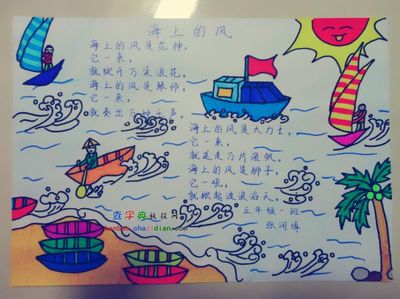 海上的风
海上的风是花神,
它一来,
就绽开万朵浪花。
海上的风是琴师,
它一来,
就奏出万种乐声。
海上的风是大力士,
它一来,
就送走万片渔帆。
海上的风是狮子,
它一吼,
就掀起波浪滔天。
五年级一班
张润博
查字典
chazidian.com